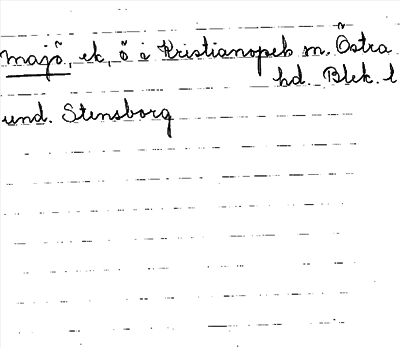 majö, ek, ö i Kristianopels sn. Östra
hd. Blek. l
und. Stensborg